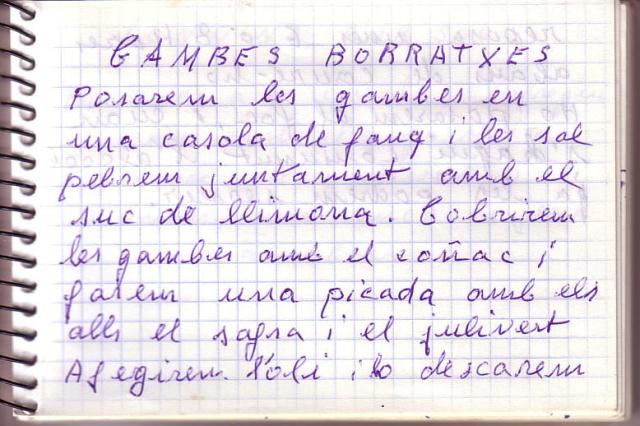 GAMBES BORRATXES
Posarem les gambes en
una casola de fang i les sal
pebrem juntament amb el
suc de llimona. Cobrirem
les gambes amb el coñac i
farem una picada amb els
alls el sagra i el julivert
Afegirem l'oli i ho descarem